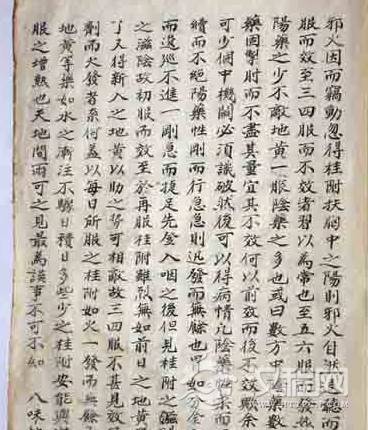 邪火因而竊動忽得桂附扶胸中之陽則邪火自聽而
服而效至三四服而不效者習以為常也至五六服發
陽藥之少不敵地黃一服陰藥之多也或曰數方中陰藥
藥固掣肘而不盡其量宜其不效何以前效而後不效歟余
可少個中機關必須識破然後可以得病情凡陰藥性柔而
續而不絕陽藥性剛而行急急則迅發而無餘也如分金
而逡巡不進一剛急而捷足先登入咽之後但見桂附之溫
之滋陰故初服而效至於再服桂附雖烈無如前日之地黃
了又得新入之地黃以助之勢可相敵故三四服不甚見效
劑而火發者系何蓋以每日所服之桂附如火一發而無餘
地黃等藥如水之漸注不驟日積日多些少之桂附安能與
服之增熱也天地間兩可之見最為誤事不可不知 八味